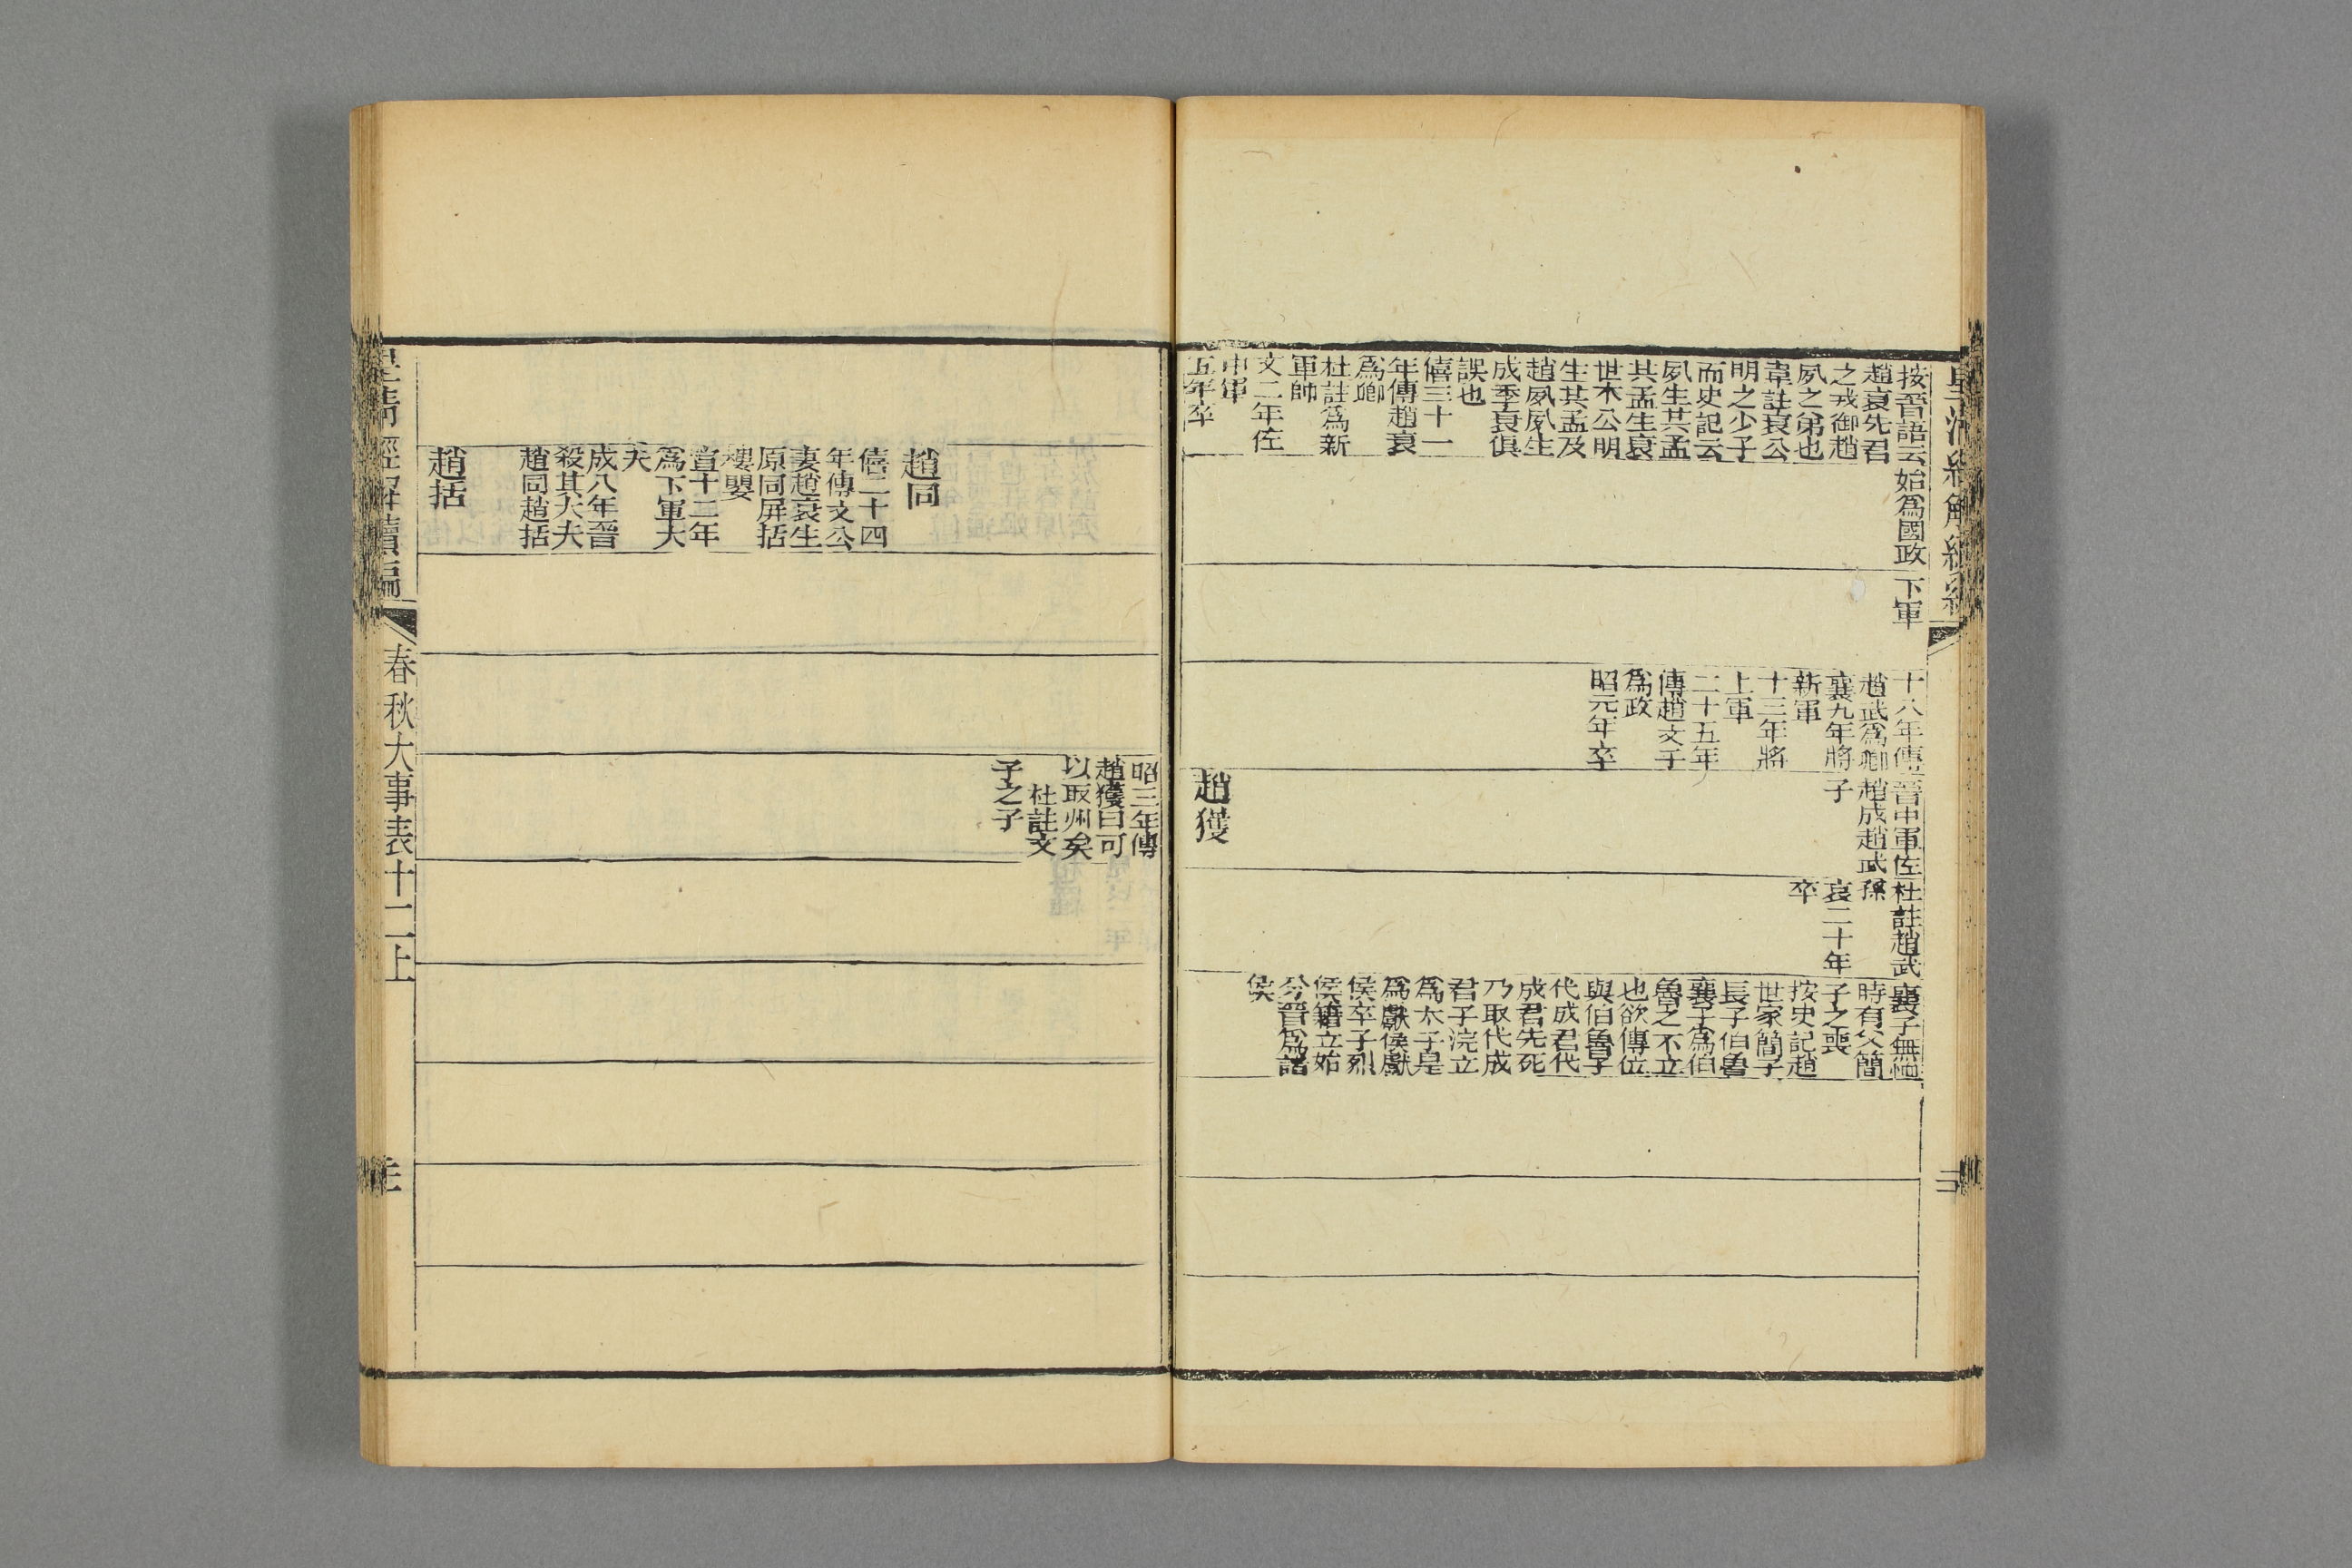 按晉語云
趙衰先君
之戎御趙
夙之弟也
韋註衰公
明之少子
而史記云
夙生共孟
共孟生衰
世本公明
生共孟及
趙夙夙生
成季衰俱
誤也
僖三十一
年傳趙衰
爲卿
杜註爲新
軍帥
文二年佐
中軍
五年卒
始爲國政
下軍
十八年傳
趙武爲卿
襄九年將
新軍
十三年將
上軍
二十五年
傳趙文子
爲政
昭元年卒
晉中軍佐
趙成趙武
子
趙獲
杜註趙武
孫
哀二十年
卒
襄子無恤
時有父簡
子之喪
按史記趙
世家簡子
長子伯魯
襄子爲伯
魯之不立
也欲傳位
與伯魯子
代成君代
成君先死
乃取代成
君子浣立
爲太子是
爲獻侯獻
侯卒子烈
侯籍立始
分晉爲諸
侯
趙同
僖二十四
年傳文公
妻趙衰生
原同屏括
樓嬰
宣十二年
爲下軍大
夫
成八年晉
殺其大夫
趙同趙括
趙括
昭三年傳
趙獲曰可
以取州矣
杜註文
子之子
皇淸經解續編
春秋大事表十二上